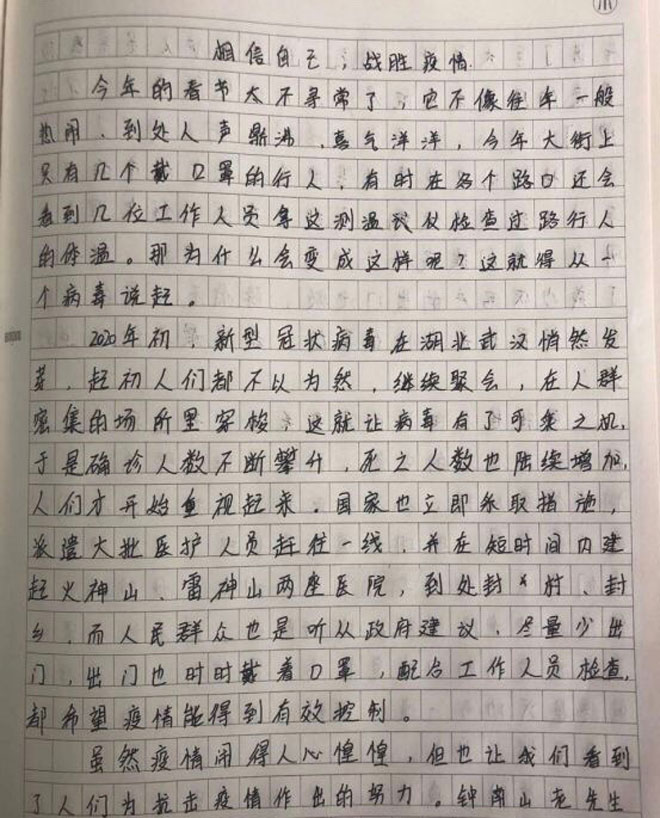 相信自己，战胜疫情
今年的春节太不寻常了，它不像往年一般
热闹、到处人声鼎沸、喜气洋洋，今年大街上
只有几个戴口罩的行人，有时在各个路口还会
看到几位工作人员拿这测温仪检查过路行人
的体温。那为什么会变成这样呢？这就得从一
个病毒说起。
2020年初，新型冠状病毒在湖北武汉悄然发
芽，起初人们都不以为然，继续聚会，在人群
密集的场所里穿梭，这就让病毒有了可乘之机，
于是确诊人数不断攀升，死亡人数也陆续增加，
人们才开始重视起来。国家也立即采取措施，
派遣大批医护人员赶往一线，并在短时间内建
起火神山、雷神山两座医院，到处封村、封
乡，而人民群众也是听从政府建议，尽量少出
门，出门也时时戴着口罩，配合工作人员检查，
都希望疫情能得到有效控制。
虽然疫情闹得人心惶惶，但也让我们看到
了人们为抗击疫情作出的努力。钟南山老先生